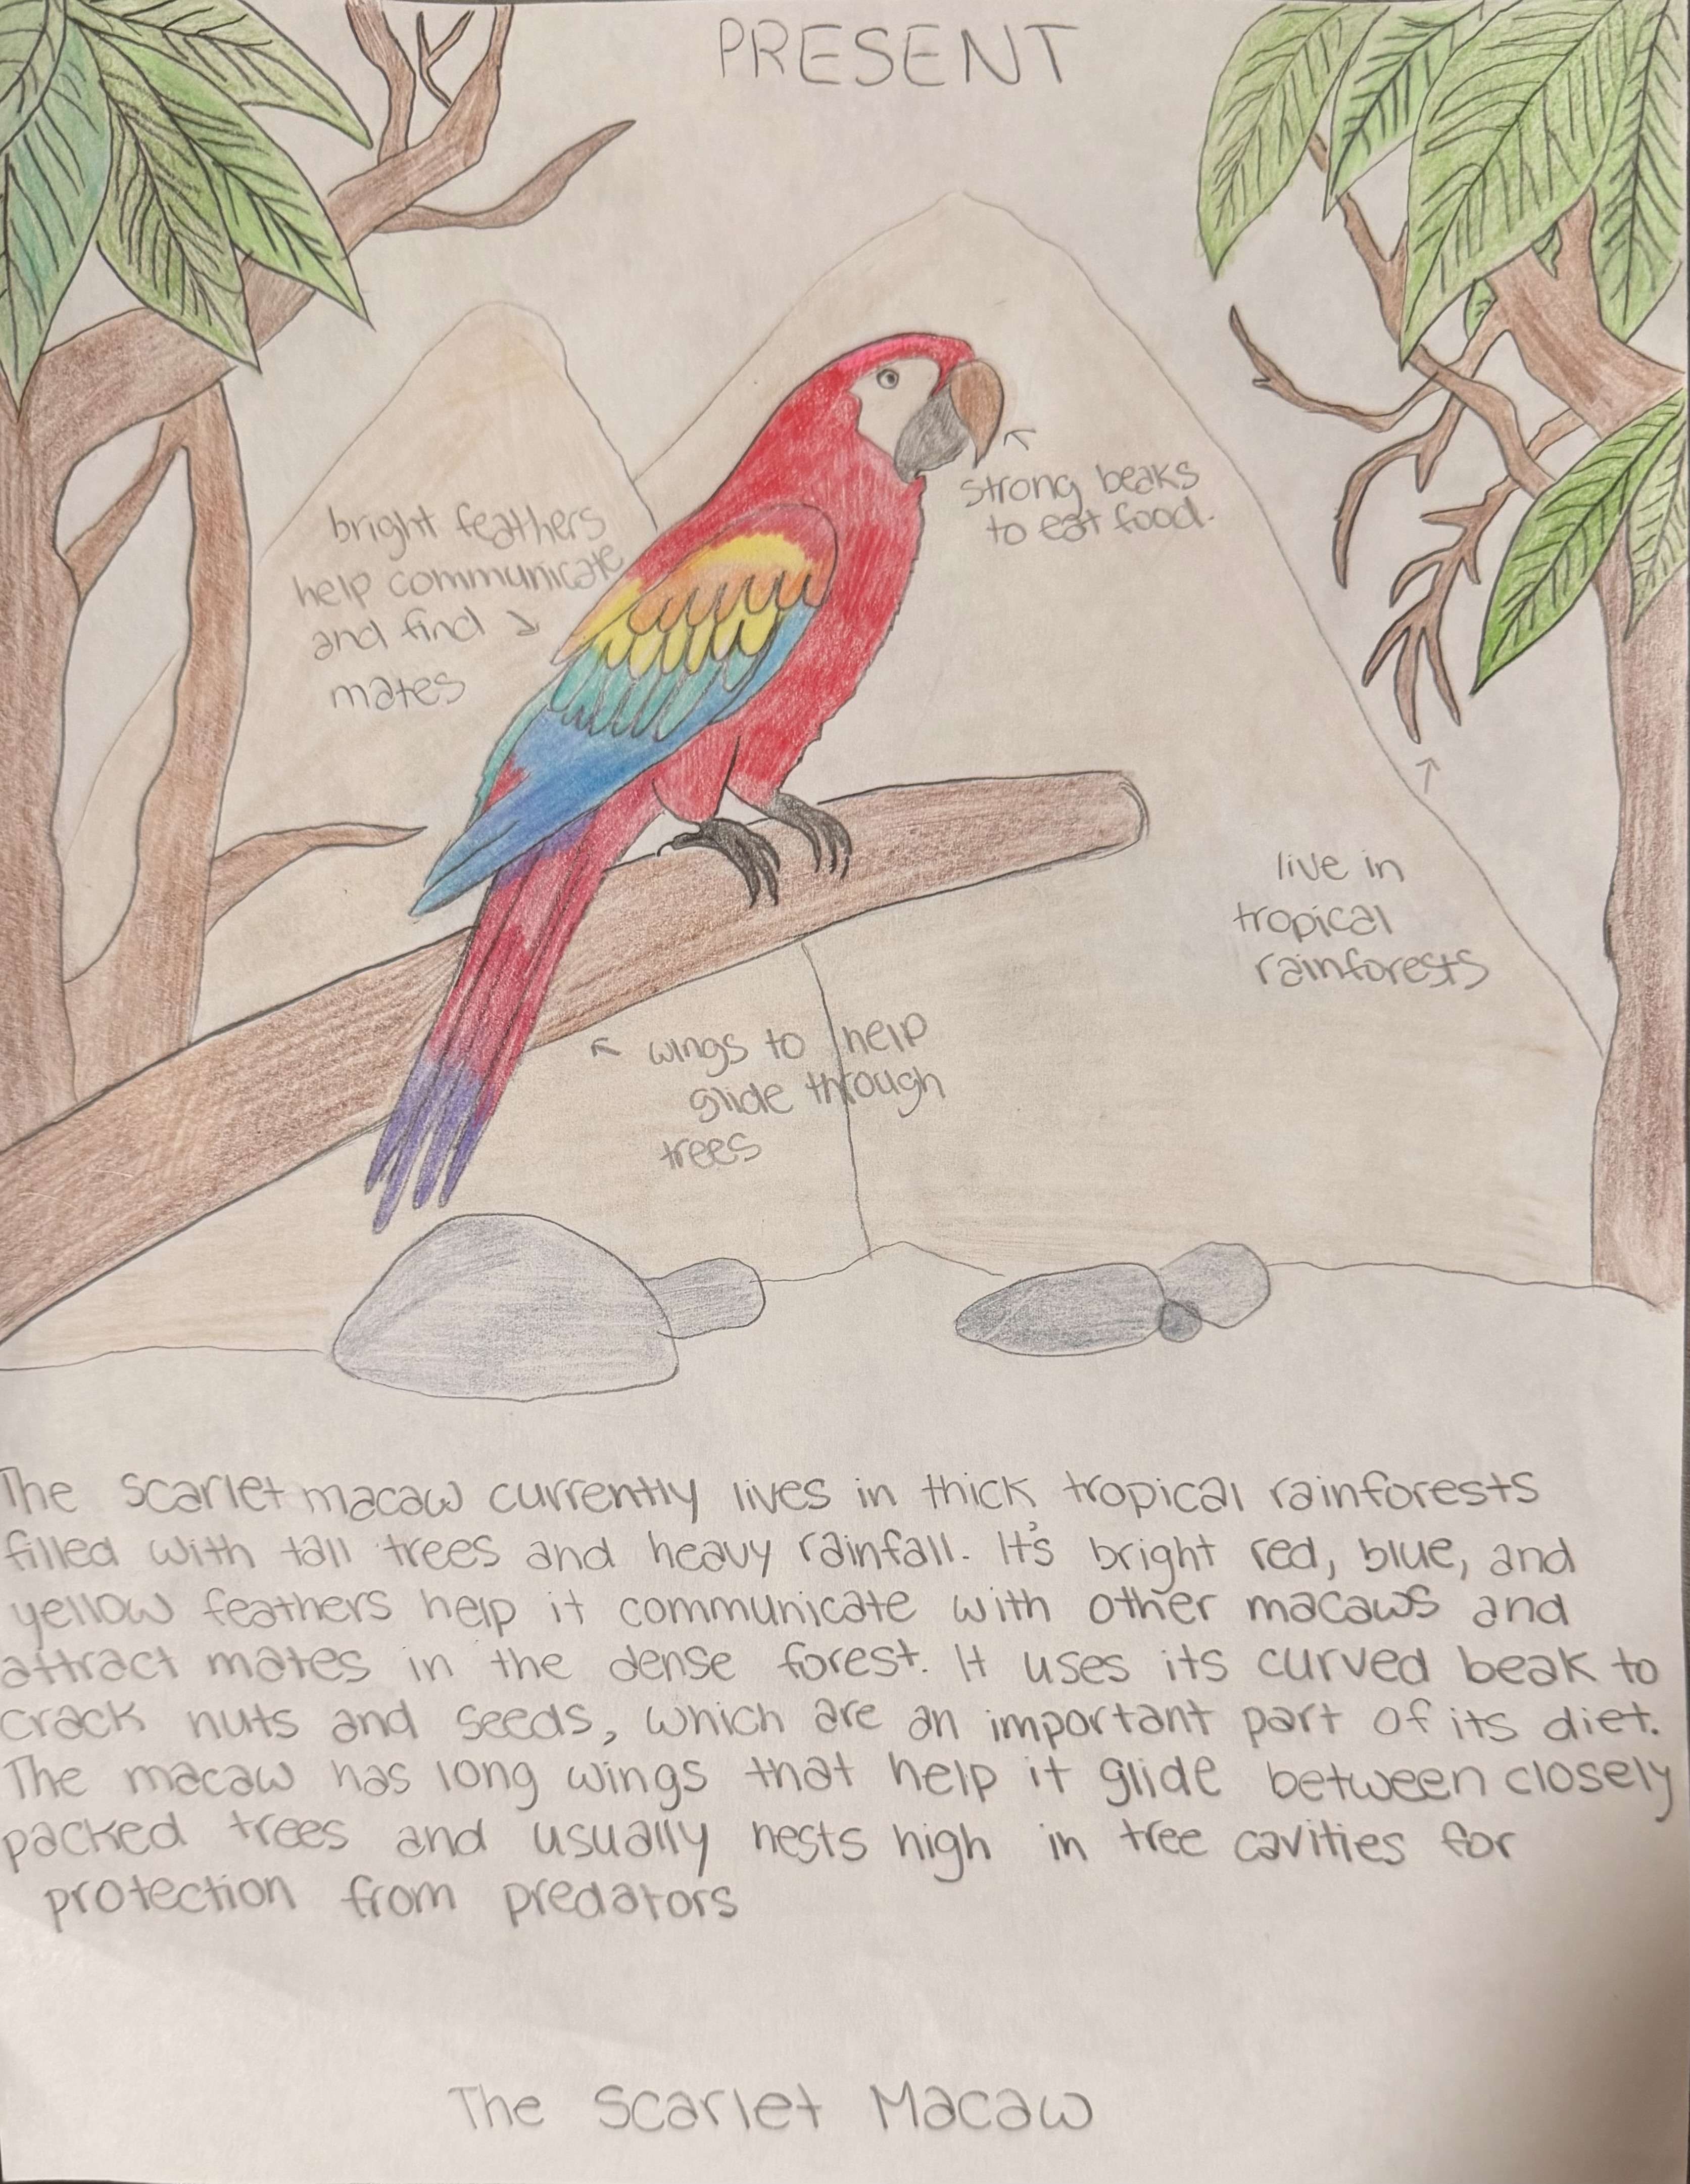 PRESENT
strong beaks
to eat food.
bright feathers
help communicate
and find
mates
live in
tropical
rainforests
wings to help
glide through
trees
The Scarlet macaw currently lives in thick tropical rainforests
filled with tall trees and heavy rainfall. It's bright red, blue, and
yellow feathers help it communicate with other macaws and
attract mates in the dense forest. It uses its curved beak to
crack nuts and seeds, which are an important part of its diet.
The macaw has long wings that help it glide between closely
packed trees and usually nests high in tree cavities for
protection from predators
The Scarlet Macaw